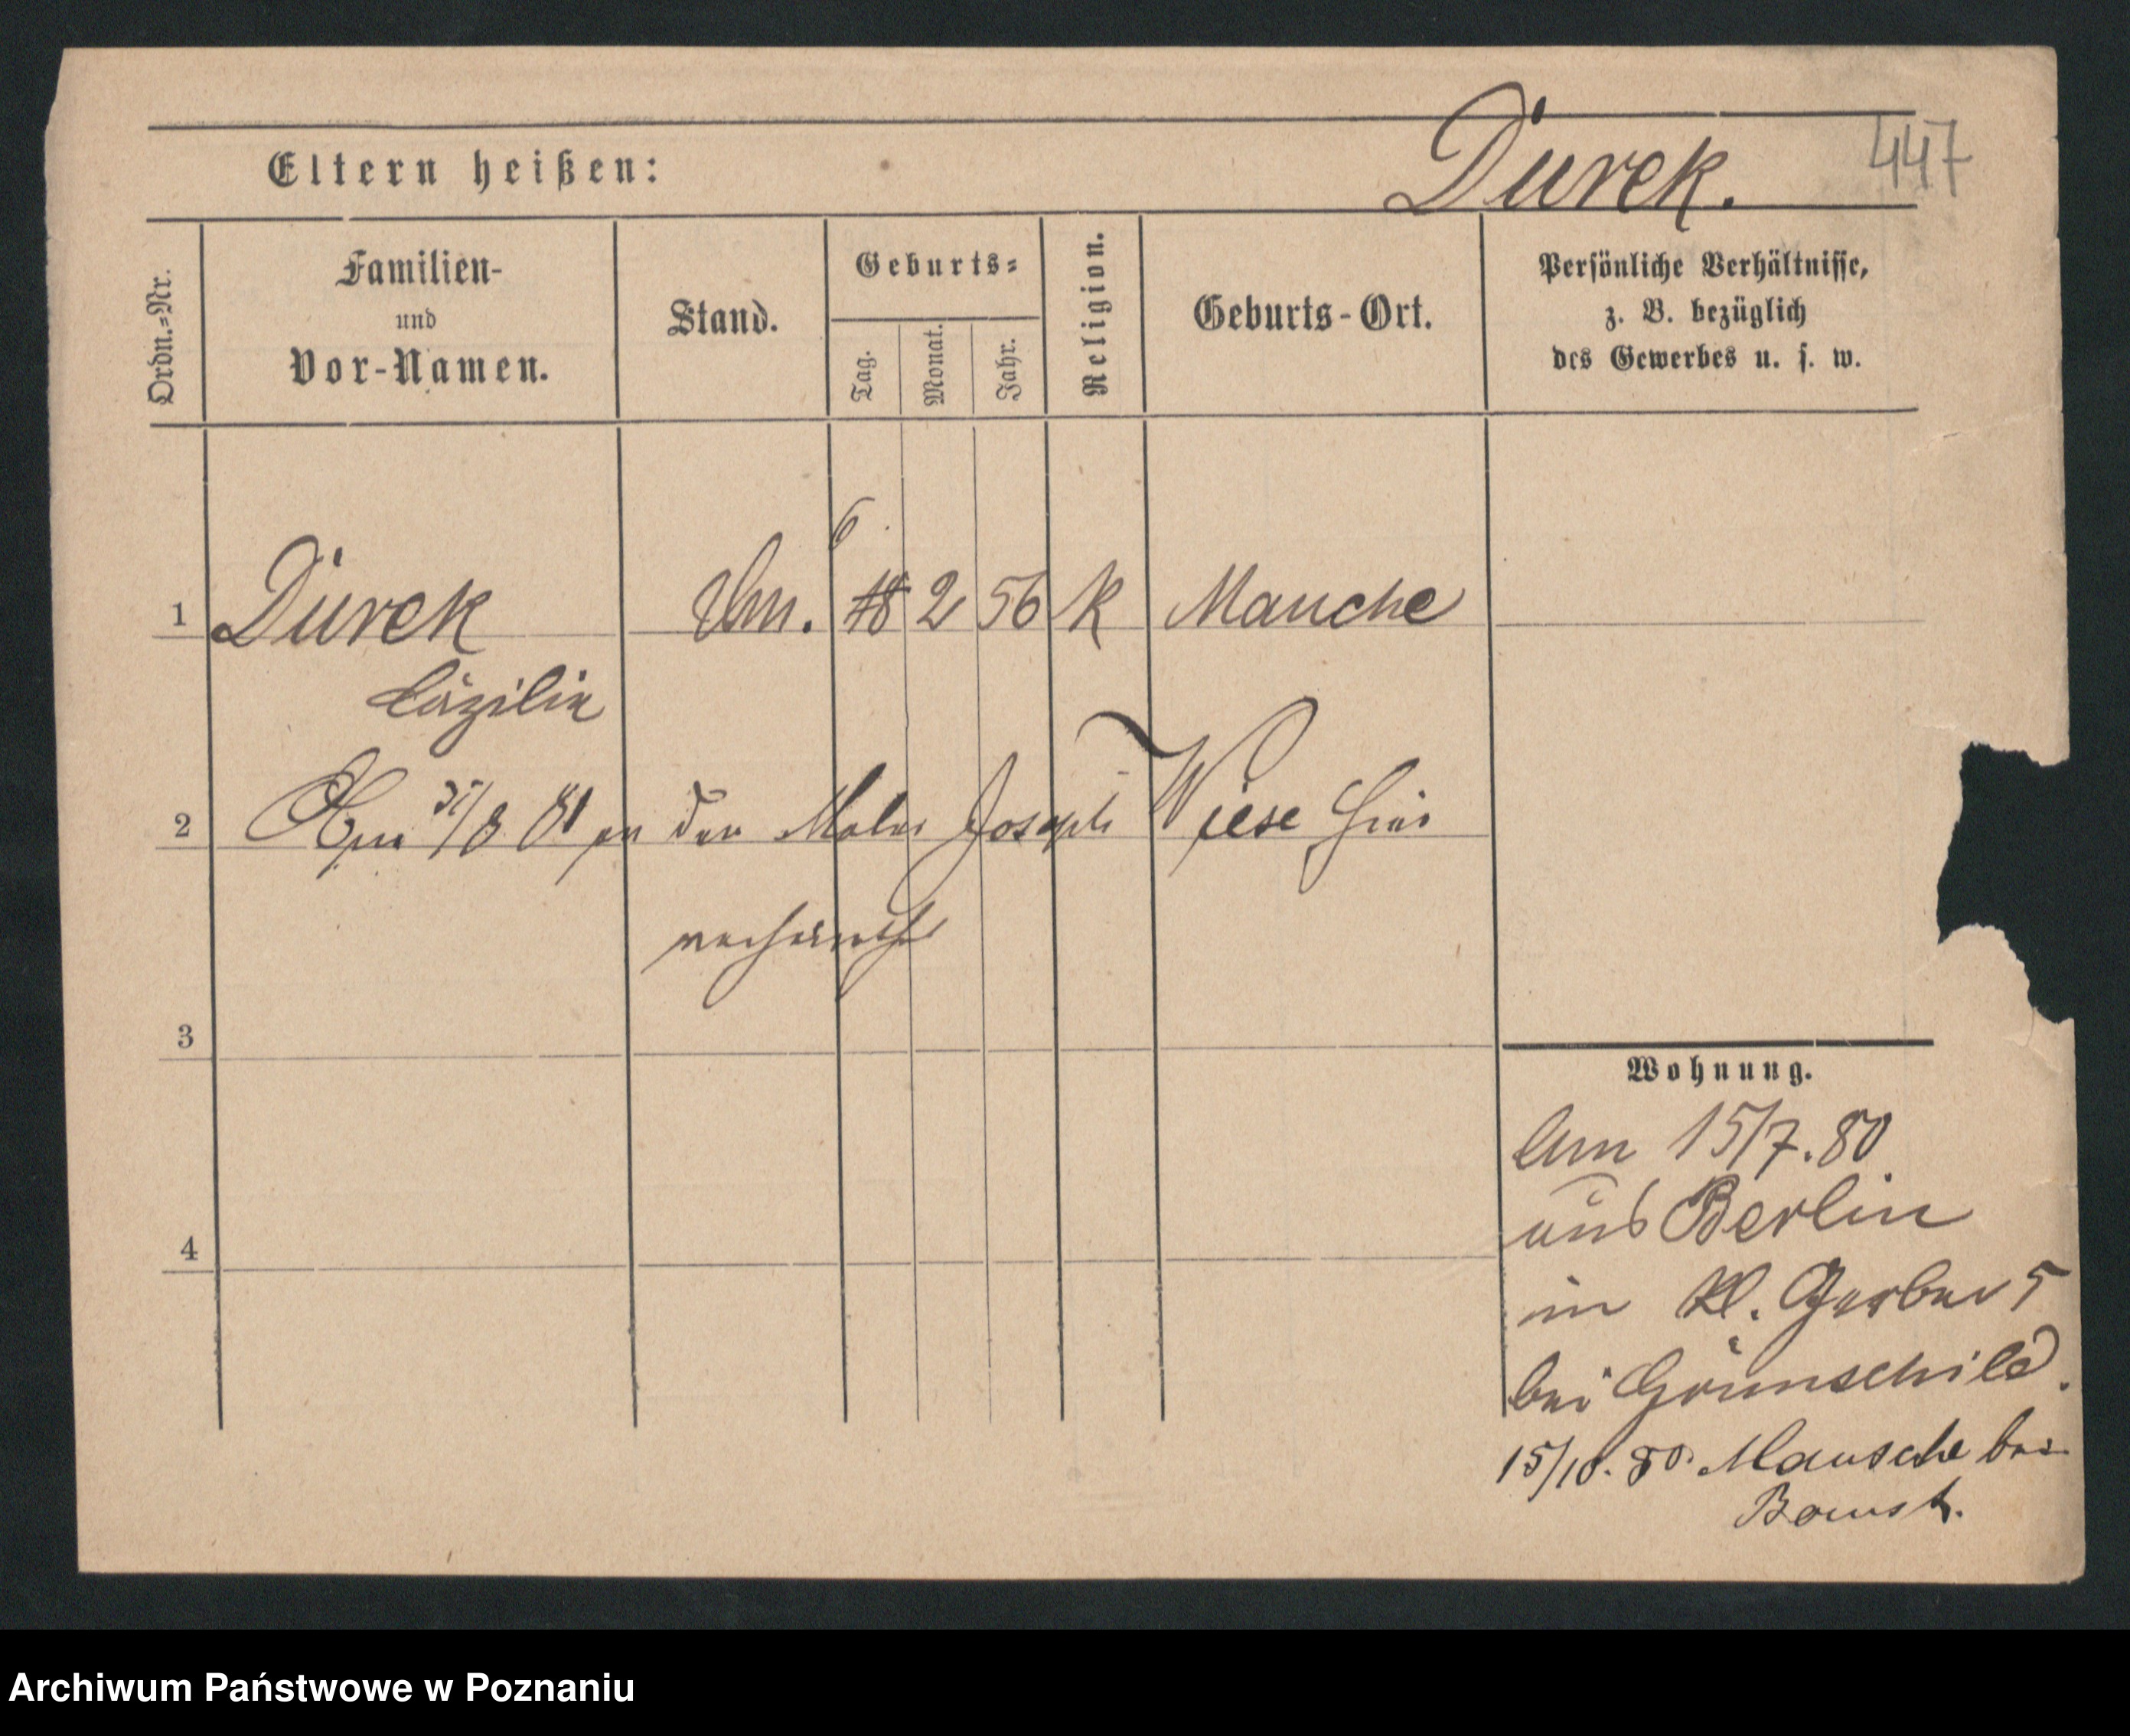 Eltern heißen:
Durek.
447
Ordn.=Nr.
Familien-
und
Vor-Namen.
Stand.
Geburts=
Tag.
Monat.
Jahr.
Religion.
Geburts-Ort.
Persönliche Verhältnisse,
z. B. bezüglich
des Gewerbes u. s. w.
6
1 Durek 18 2 56 K Mauche
Cäzilia
2 /8 81 an den Maler Joseph Wiese hier
verheirathet
3
4
Wohnung.
Am 15/7.80
aus Berlin
in Kl. Gerber 5
bei Grünschild.
15/10.80. Mausche bei
Bomst.
Archiwum Państwowe w Poznaniu